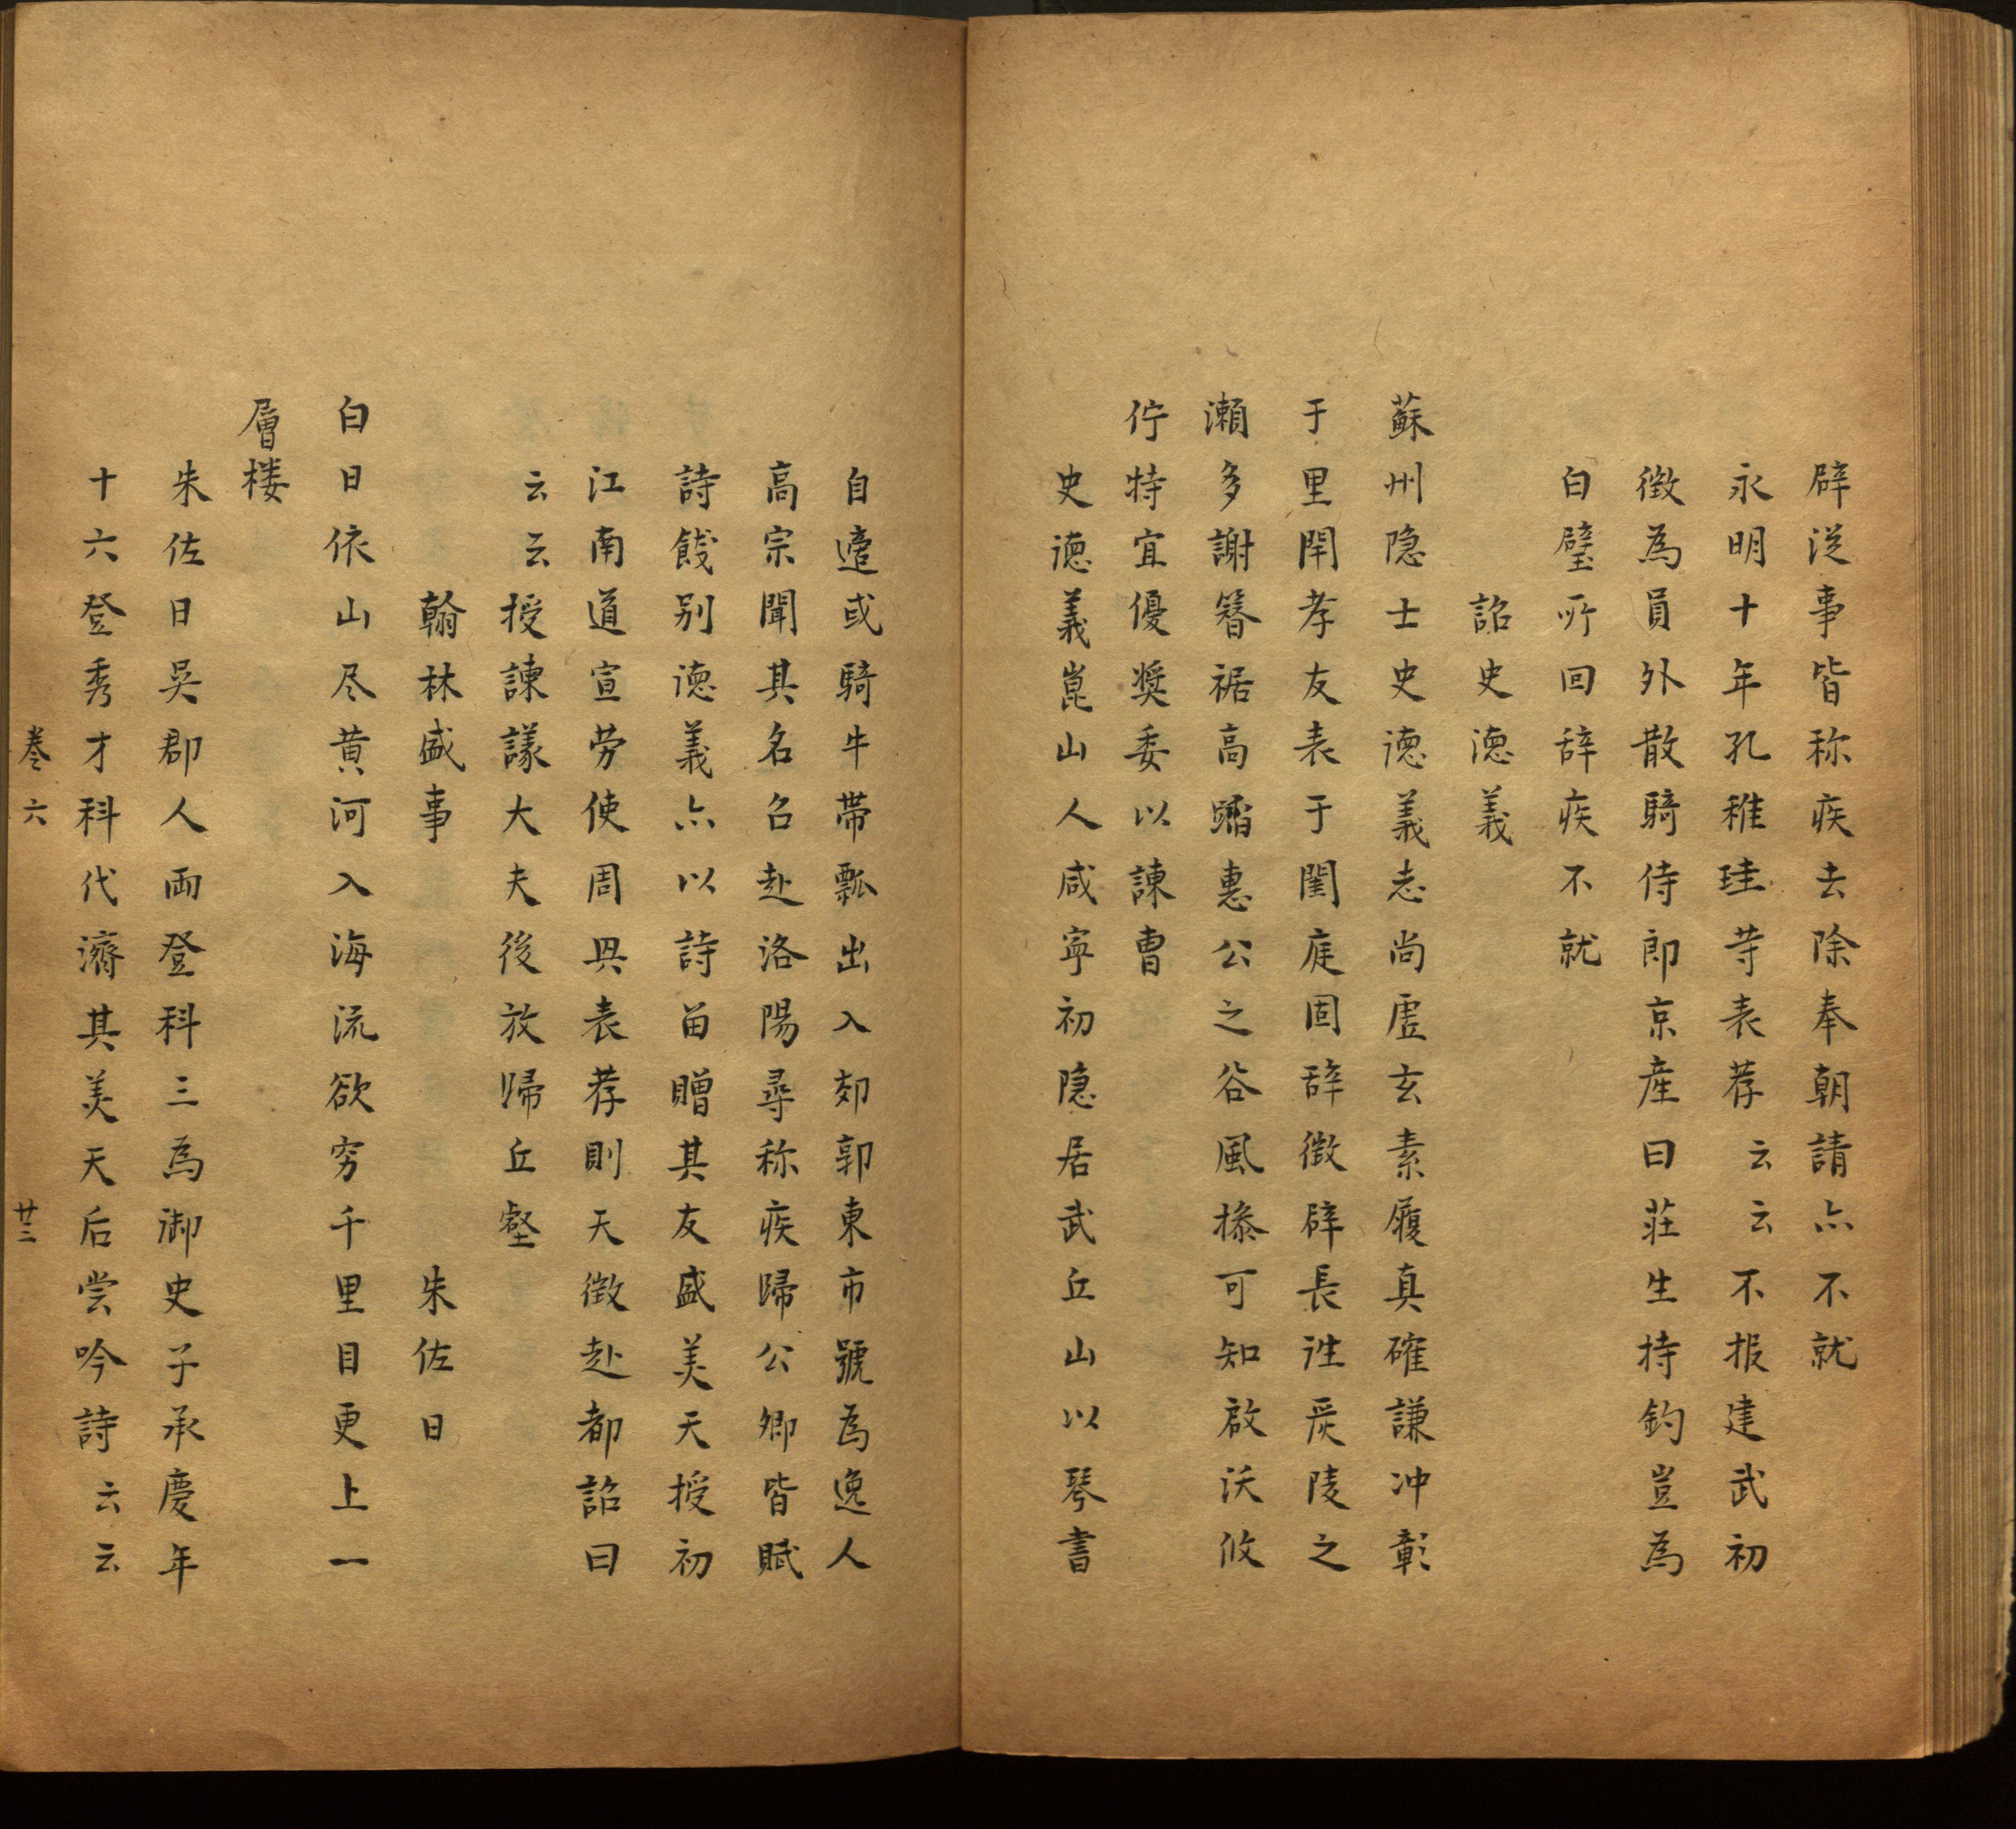 辟従事皆称疾去除奉朝請亦不就
永明十年孔稚珪等表荐云云不报建武初
徴為員外散騎侍郎京産曰荘生持釣豈為
白璧所回辞疾不就
詔史徳義
蘇州隐士史徳義志尚虚玄素履真確謙冲彰
于里閈孝友表于閨庭固辞徴辟長往㢡陵之
瀬多謝簪裾高蹈愚公之谷風操可知啟沃攸
佇特宜優奨委以諫曹
史徳義崑山人咸寧初隐居武丘山以琴書
自適或騎牛帯瓢出入郊郭東市號為逸人
高宗聞其名召赴洛陽尋称疾歸公卿皆賦
詩餞别徳義亦以詩留贈其友盛美天授初
江南道宣劳使周興表荐則天徴赴都詔曰
云云授諫議大夫後放歸丘壑
翰林盛事 朱佐日
白日依山尽黄河入海流欲穷千里目更上一
層楼
朱佐日吳郡人両登科三為御史子承慶年
十六登秀才科代濟其美天后尝吟詩云云
卷六 廿三